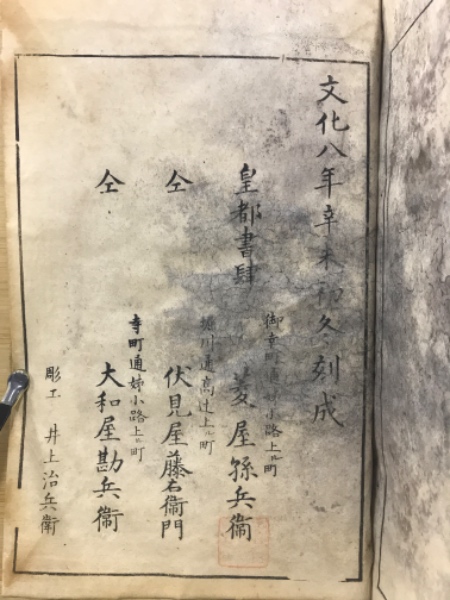 文化八年辛未初冬刻成
皇都書肆
御幸町通姉小路上ル町
菱屋孫兵衞
仝
堀川通高辻上ル町
伏見屋藤右衞門
仝
寺町通姉小路上ル町
大和屋勘兵衞
彫工 井上治兵衞